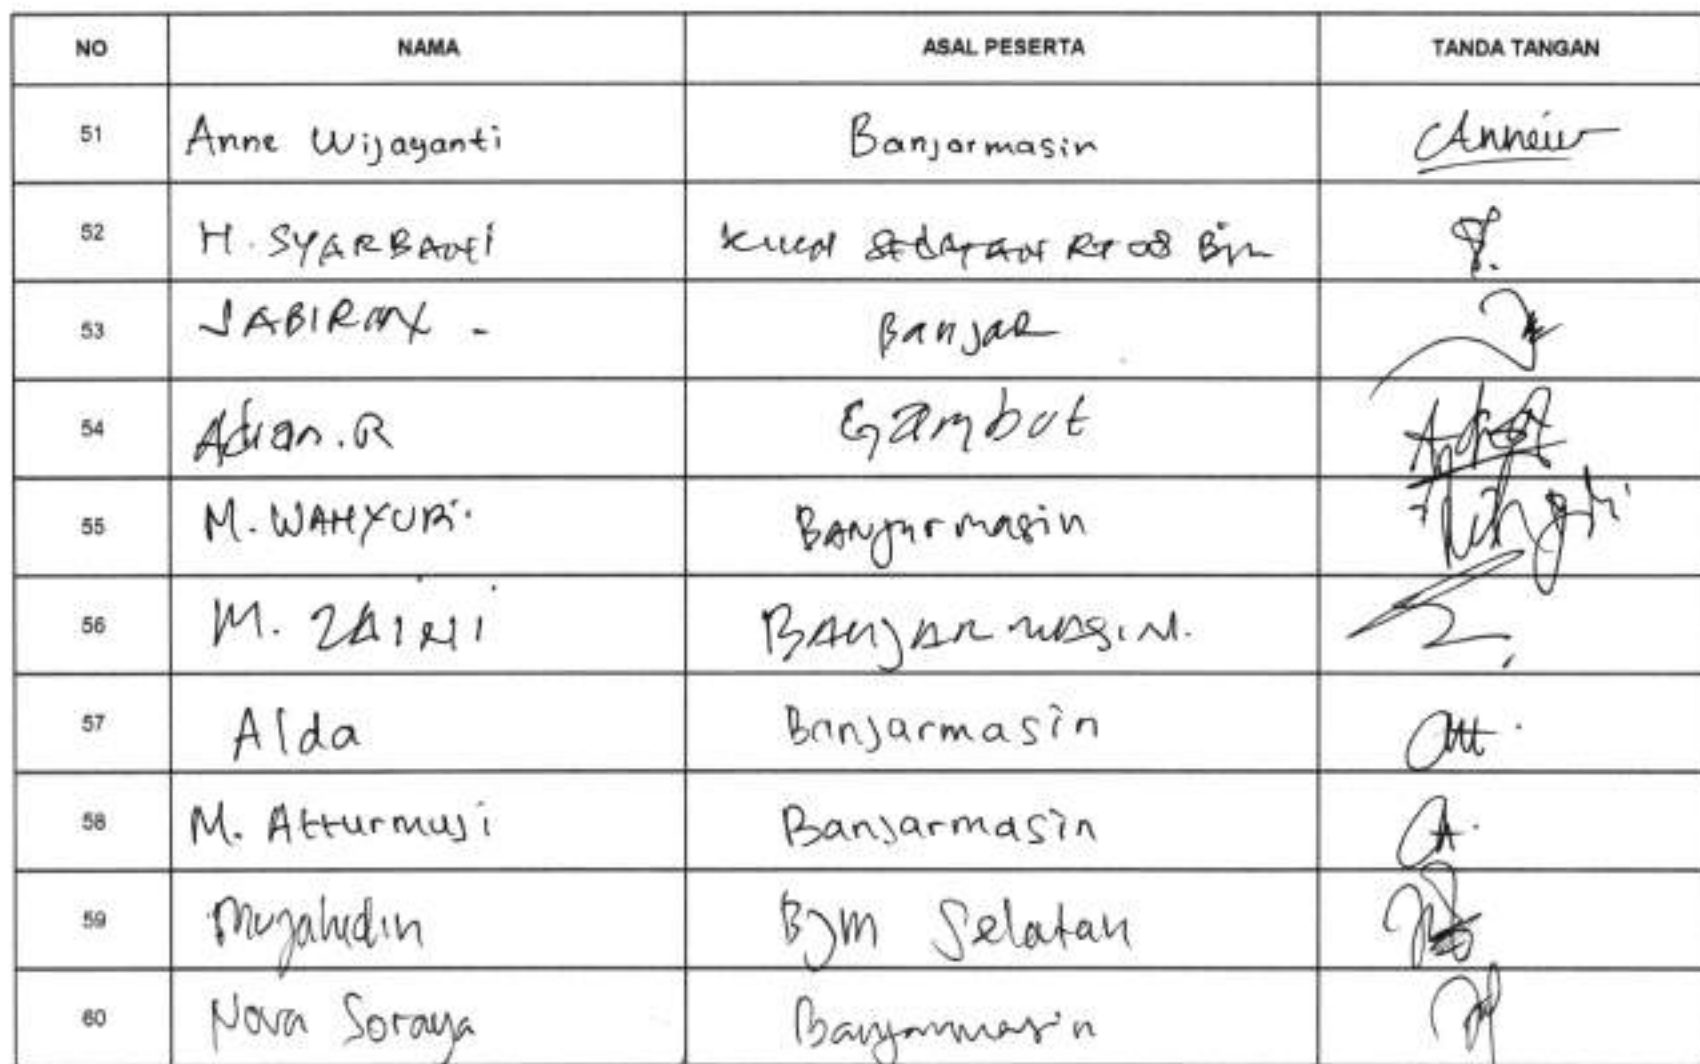 NO NAMA ASAL PESERTA TANDA TANGAN
51 Anne Wijayanti Banjarmasin
52 H. SYARBANI RT 08 Bjm
53 SABIRAN - Banjar
54 Adrian. R Gambut
55 M. WAHYUDI. Banjarmasin
56 M. ZAINI BANJARMASIN.
57 Alda Banjarmasin
58 M. Atturmusi Banjarmasin
59 Mujahidin BJM Selatan
60 Nova Soraya Banjarmasin